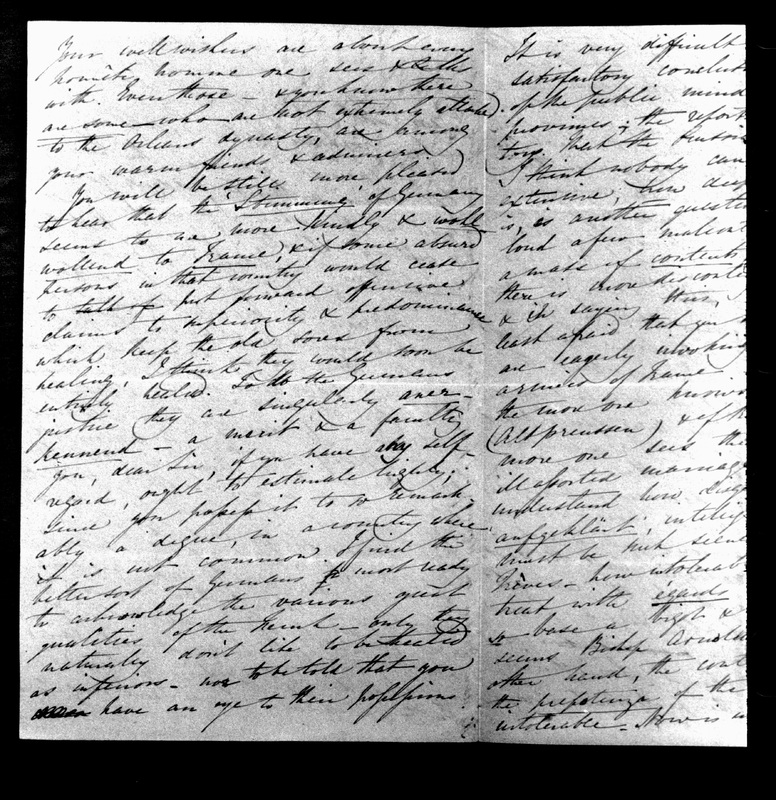 Your well wishers are about every
honnête homme one sees & talks
with. Even those – & you know there
are some – who are not extremely attached
to the Orleans dynasty, are among
your warm friends & admirers.
You will be still more pleased
to hear that the Stimmung of Germany
seems to me more kindly & wohl-
wollend to France, & if some absurd
persons in that country would cease
to talk of put forward offensive
claims to superiority & predominance
which keep the old sores from
healing, I think they would soon be
entirely healed. To do the Germans
justice they are singularly aner-
kennend – a merit & a faculty
you, dear Sir, if you have any self-
regard, ought to estimate highly;
since you possess it to so remark-
ably a degree, in a country where
it is not common. I find the
better sort of Germans most ready
to acknowledge the various great
qualities of the French – only they
naturally don't like to be treated
as inferiors – nor to be told that you
have an eye to their possessions.
It is very difficult
satisfactory conclus
of the public mind
provinces; the report
tory. That the discon
I think nobody can
extensive, how deep
is, is another question
loud a few malcont
a mass of contents
there is more disconte
& in saying this,
least afraid that you
are eagerly invoking
armies of France
the more one knows
(Altpreussen) & of
more one sees the
ill assorted marriage
understand how disag
aufgeklärt, intelig
must be such scene
Trèves – how intolerab
treat with égards
so base a bigot &
seems Bishop Arnoldi
other hand, the cont
the prepotenza of the
intolerable – Now is